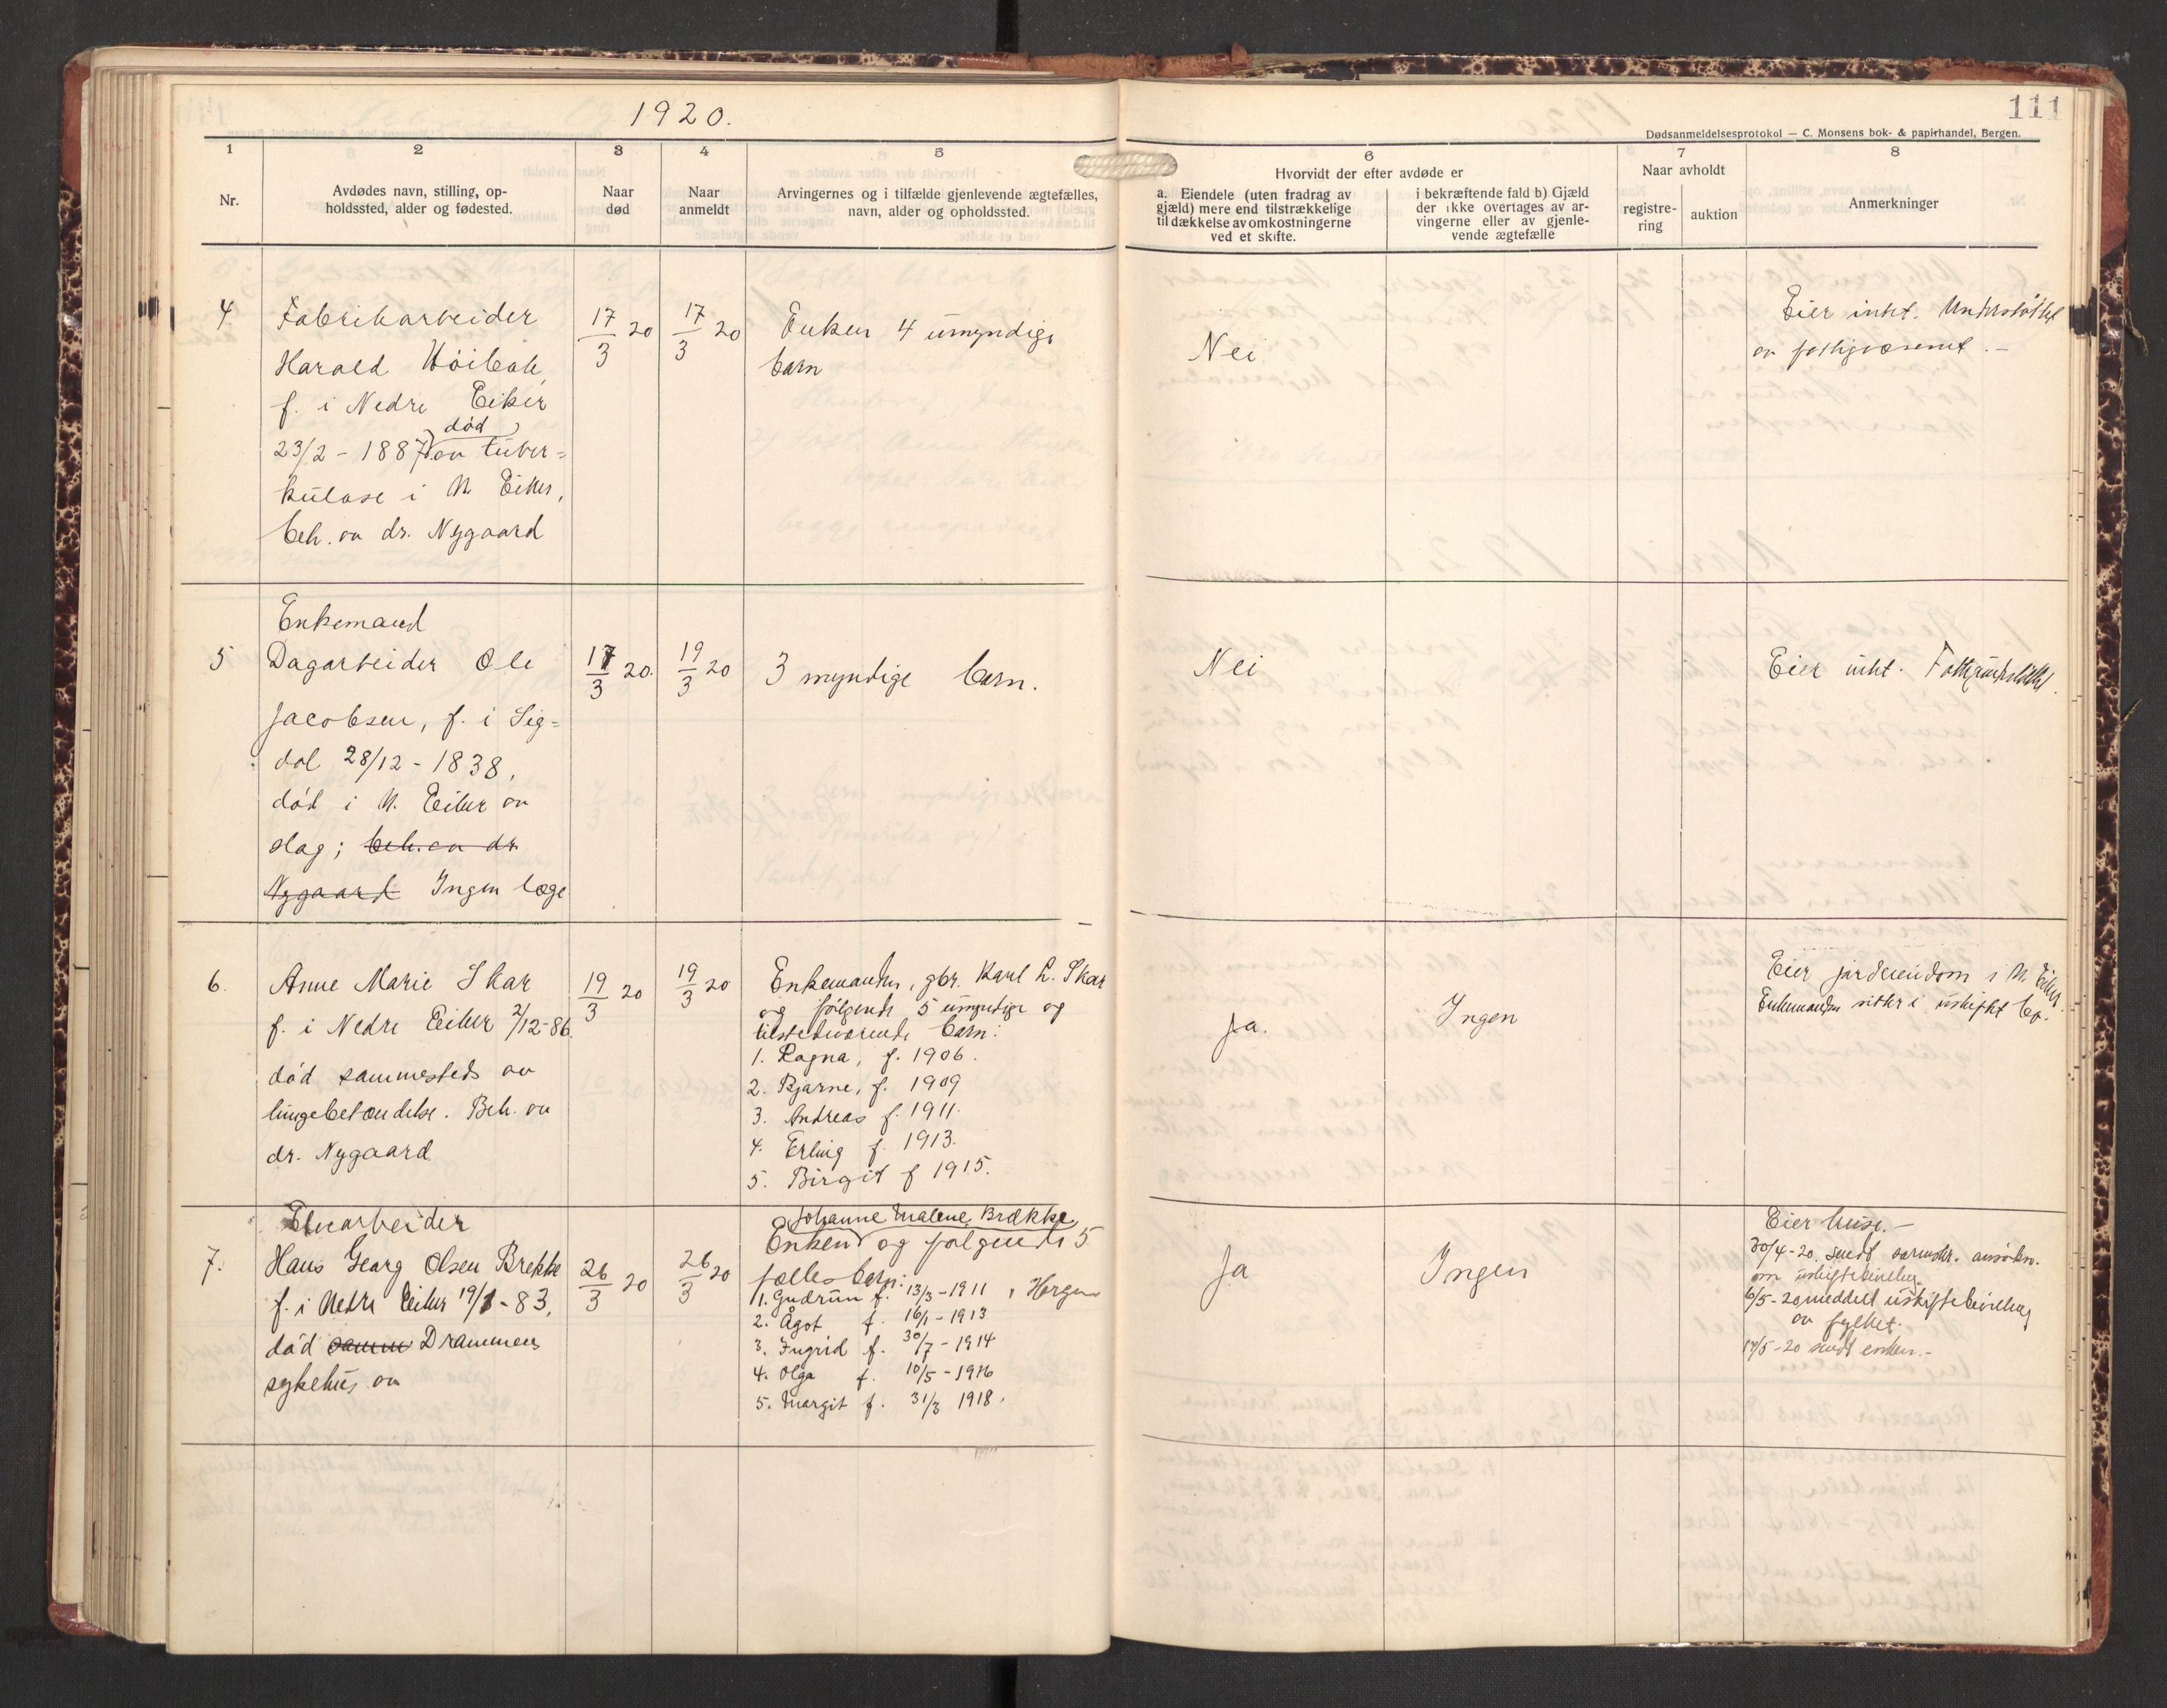 1920.
111
Dødsanmeldelsesprotokol — C. Monsens bok- & papirhandel, Bergen.
1
2
3
4
5
6
7
8
Nr.
Avdødes navn, stilling, op-
holdssted, alder og fødested.
Naar
død
Naar
anmeldt
Arvingernes og i tilfælde gjenlevende ægtefælles,
navn, alder og opholdssted.
Hvorvidt der efter avdøde er
a. Eiendele (uten fradrag av
gjæld) mere end tilstrækkelige
til dækkelse av omkostningerne
ved et skifte.
i bekræftende fald b) Gjæld
der ikke overtages av ar-
vingerne eller av gjenle-
vende ægtefælle
Naar avholdt
registre-
ring
auktion
Anmerkninger
4.
Fabrikarbeider
Harald Høibak,
f. i Nedre Eiker
død
23/2 - 1887 av tuber=
kulose i N. Eiker,
beh. av dr. Nygaard
17/3 20
17/3 20
Enken 4 umyndige
barn
Nei
Eier intet. Understøttet
av fattigvæsenet. -
5
Enkemand
Dagarbeider Ole
Jacobsen, f. i Sig=
dal 28/12 - 1838,
død i N. Eiker av
slag; beh. av dr.
Nygaard Ingen læge
17/3 20.
19/3 20
3 myndige barn.
Nei
Eier intet. Fattigunderstøttet.
6.
Anne Marie Skar
f. i Nedre Eiker 2/12-86.
død sammesteds av
lungebetændelse. Beh. av
dr. Nygaard
19/3 20
19/3 20
Enkemanden, gbr. Karl L. Skar
og følgende 5 umyndige og
tilstedeværende barn:
1. Ragna, f. 1906.
2. Bjarne, f. 1909
3. Andreas f. 1911.
4. Erling f. 1913.
5. Birgit f 1915.
Ja.
Ingen
Eier jordeiendom i N. Eiker
Enkemanden sitter i uskiftet bo.
7.
Elvearbeider
Hans Georg Olsen Brekke
f. i Nedre Eiker 19/1 - 83,
død samme Drammens
sykehus av
26/3 20
26/3 20
Johanne Malene Brække,
Enken og følgende 5
fælles barn:
1. Gudrun f. 13/3 - 1911
Horgen
2. Ågot f. 16/1 - 1913
3. Ingrid f. 30/7 - 1914
4. Olga f. 10/5 - 1916
5. Margit f. 31/3 1918.
Ja
Ingen
Eier huse. -
30/4-20. sendt sorenskr. ansøkn.
om uskiftebevilling
6/5-20 meddelt uskiftebevilling
av fylket.
14/5-20 sendt enken. -